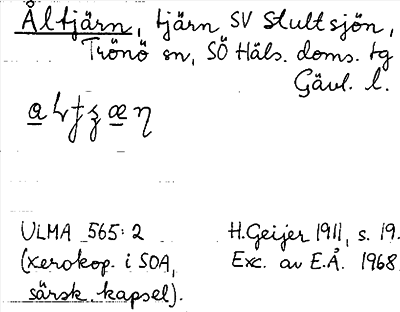 Åltjärn, tjärn SV Stultsjön,
Trönö sn, SÖ Häls. doms. tg
Gävl. l.
ULMA 565:2 H.Geijer 1911, s. 19.
(xerokop. i SOA, Exc. av E.Å. 1968
särsk. kapsel).